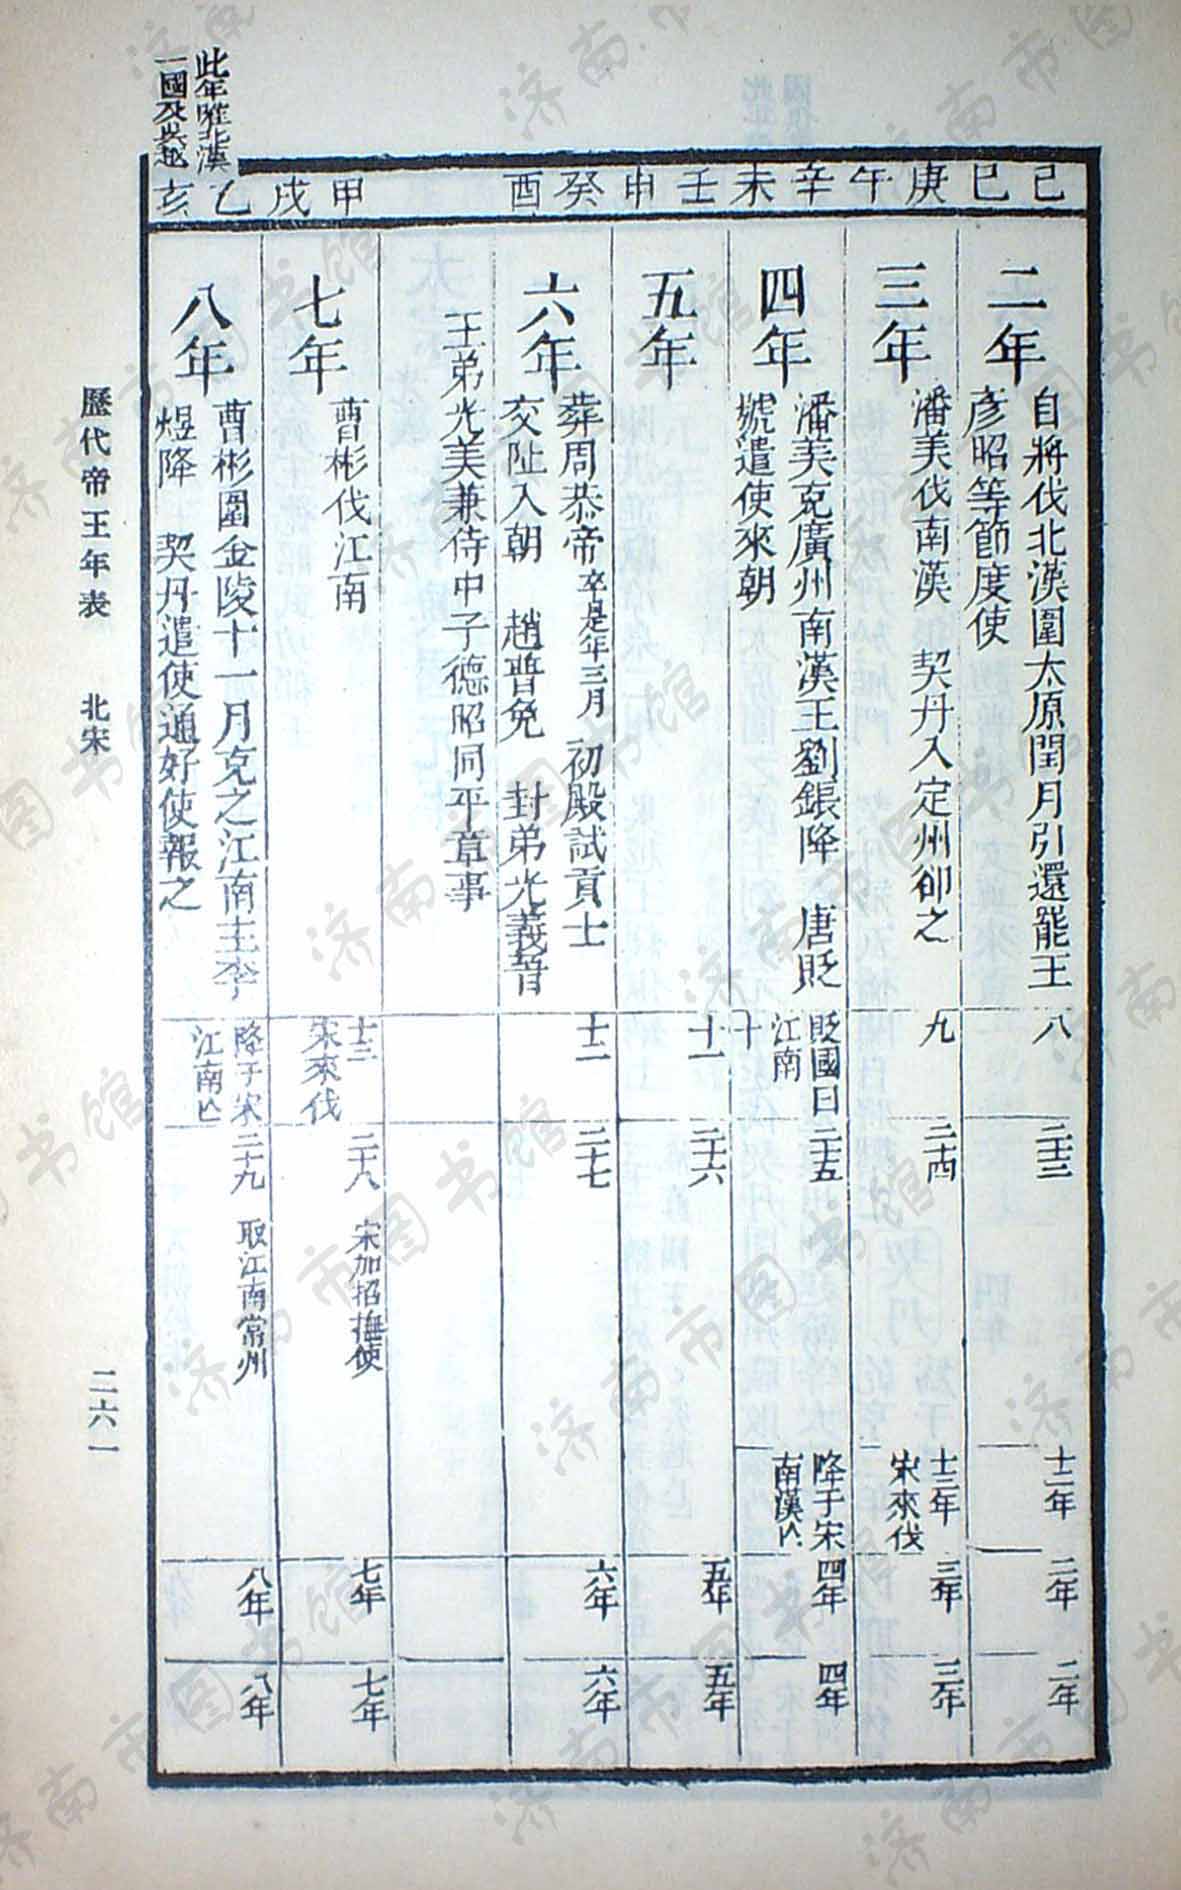 己巳
二年
自將伐北漢圍太原閏月引還罷王
彥昭等節度使
八
二十三
十二年
二年
二年
庚午
三年
潘美伐南漢　契丹入定州卻之
九
二十四
十三年
宋來伐
三年
三年
辛未
四年
潘美克廣州南漢王劉鋹降　唐貶
號遣使來朝
十
貶國曰
江南
二十五
降于宋
南漢亡
四年
四年
壬申
五年
十一
二十六
五年
五年
癸酉
六年
葬周恭帝卒是年三月　初殿試貢士
交阯入朝　趙普免　封弟光義晉
王弟光美兼侍中子德昭同平章事
十二
二十七
六年
六年
甲戌
七年
曹彬伐江南
十三
宋來伐
二十八
宋加招撫使
七年
七年
此年唯北漢
一國及吳越
乙亥
八年
曹彬圍金陵十一月克之江南主李
煜降　契丹遣使通好使報之
降于宋
江南亡
二十九
取江南常州
八年
八年
歷代帝王年表　北宋
二六一
济南市图书馆